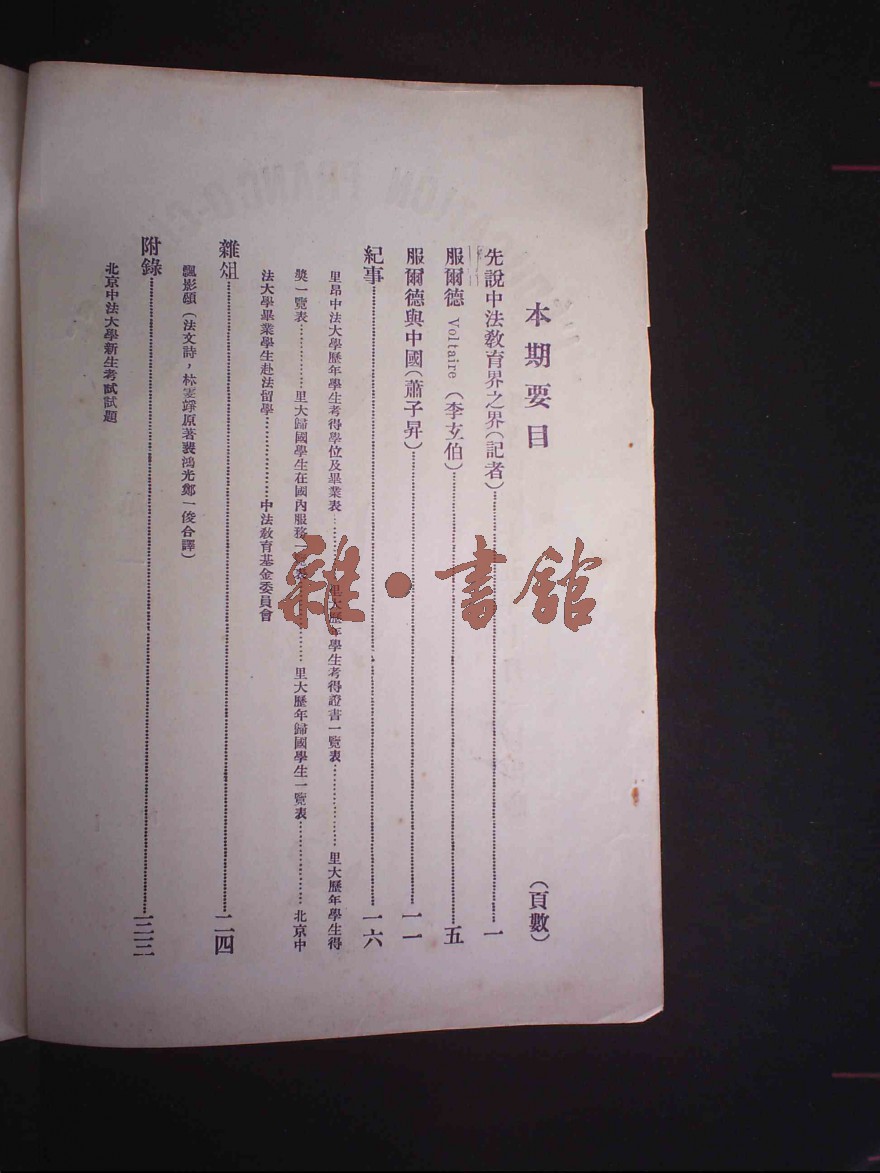 本期要目
(頁數)
先說中法敎育界之界(記者)……一
服爾德 Voltaire (李玄伯)……五
服爾德與中國(蕭子昇)……一一
紀事……一六
里昂中法大學歷年學生考得學位及畢業表……里大歷年學生考得證書一覽表……里大歷年學生得
獎一覽表……里大歸國學生在國內服務一覽表……里大歷年歸國學生一覽表……北京中
法大學畢業學生赴法留學……中法敎育基金委員會
雜俎……二四
飄影頤(法文詩，林雲錚原著裴鴻光鄭一俊合譯)
附錄……三三
北京中法大學新生考試試題
雜·書館